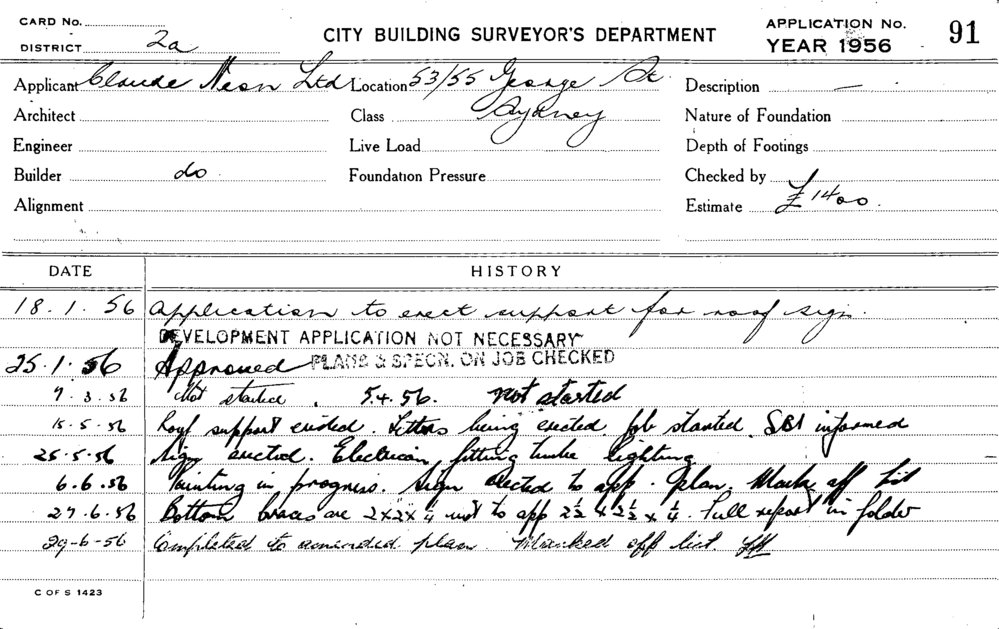 CARD No.
DISTRICT 2a
CITY BUILDING SURVEYOR'S DEPARTMENT
APPLICATION No. 91
YEAR 1956
Applicant Claude Neon Ltd Location 53/55 George St Description —
Architect Class Sydney Nature of Foundation
Engineer Live Load Depth of Footings
Builder do Foundation Pressure Checked by
Alignment Estimate £1400.
DATE HISTORY
18.1.56 Application to erect support for roof sign.
DEVELOPMENT APPLICATION NOT NECESSARY
25.1.56 Approved PLANS & SPECN. ON JOB CHECKED
7.3.56 Not started. 5.4.56. Not started
15.5.56 Roof support erected. Letters being erected job started. SBI informed
25.5.56 Sign erected. Electrician fitting tube lighting
6.6.56 Painting in progress. Sign erected to app. plan. Mark off list
27.6.56 Bottom braces are 2x2x¼ not to app 2½ x 2½ x ¼. Full report in folder
29-6-56 Completed to amended plan. Marked off list.
C OF S 1423